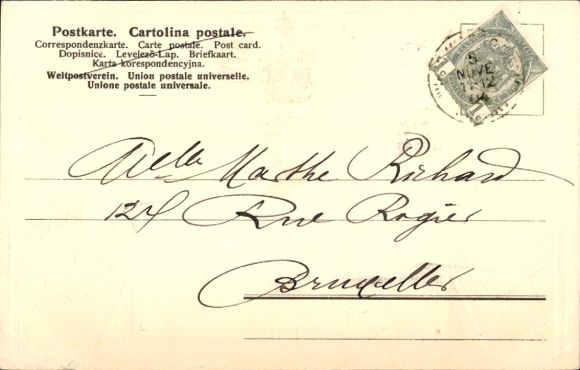 Postkarte. Cartolina postale.
Correspondenzkarte. Carte postale. Post card.
Dopisnice. Levelező-Lap. Briefkaart.
Karta korespondencyjna.
Weltpostverein. Union postale universelle.
Unione postale universale.
5
NOVE
11-12
04
1
Melle Marthe Richard
124 Rue Rogier
Bruxelles